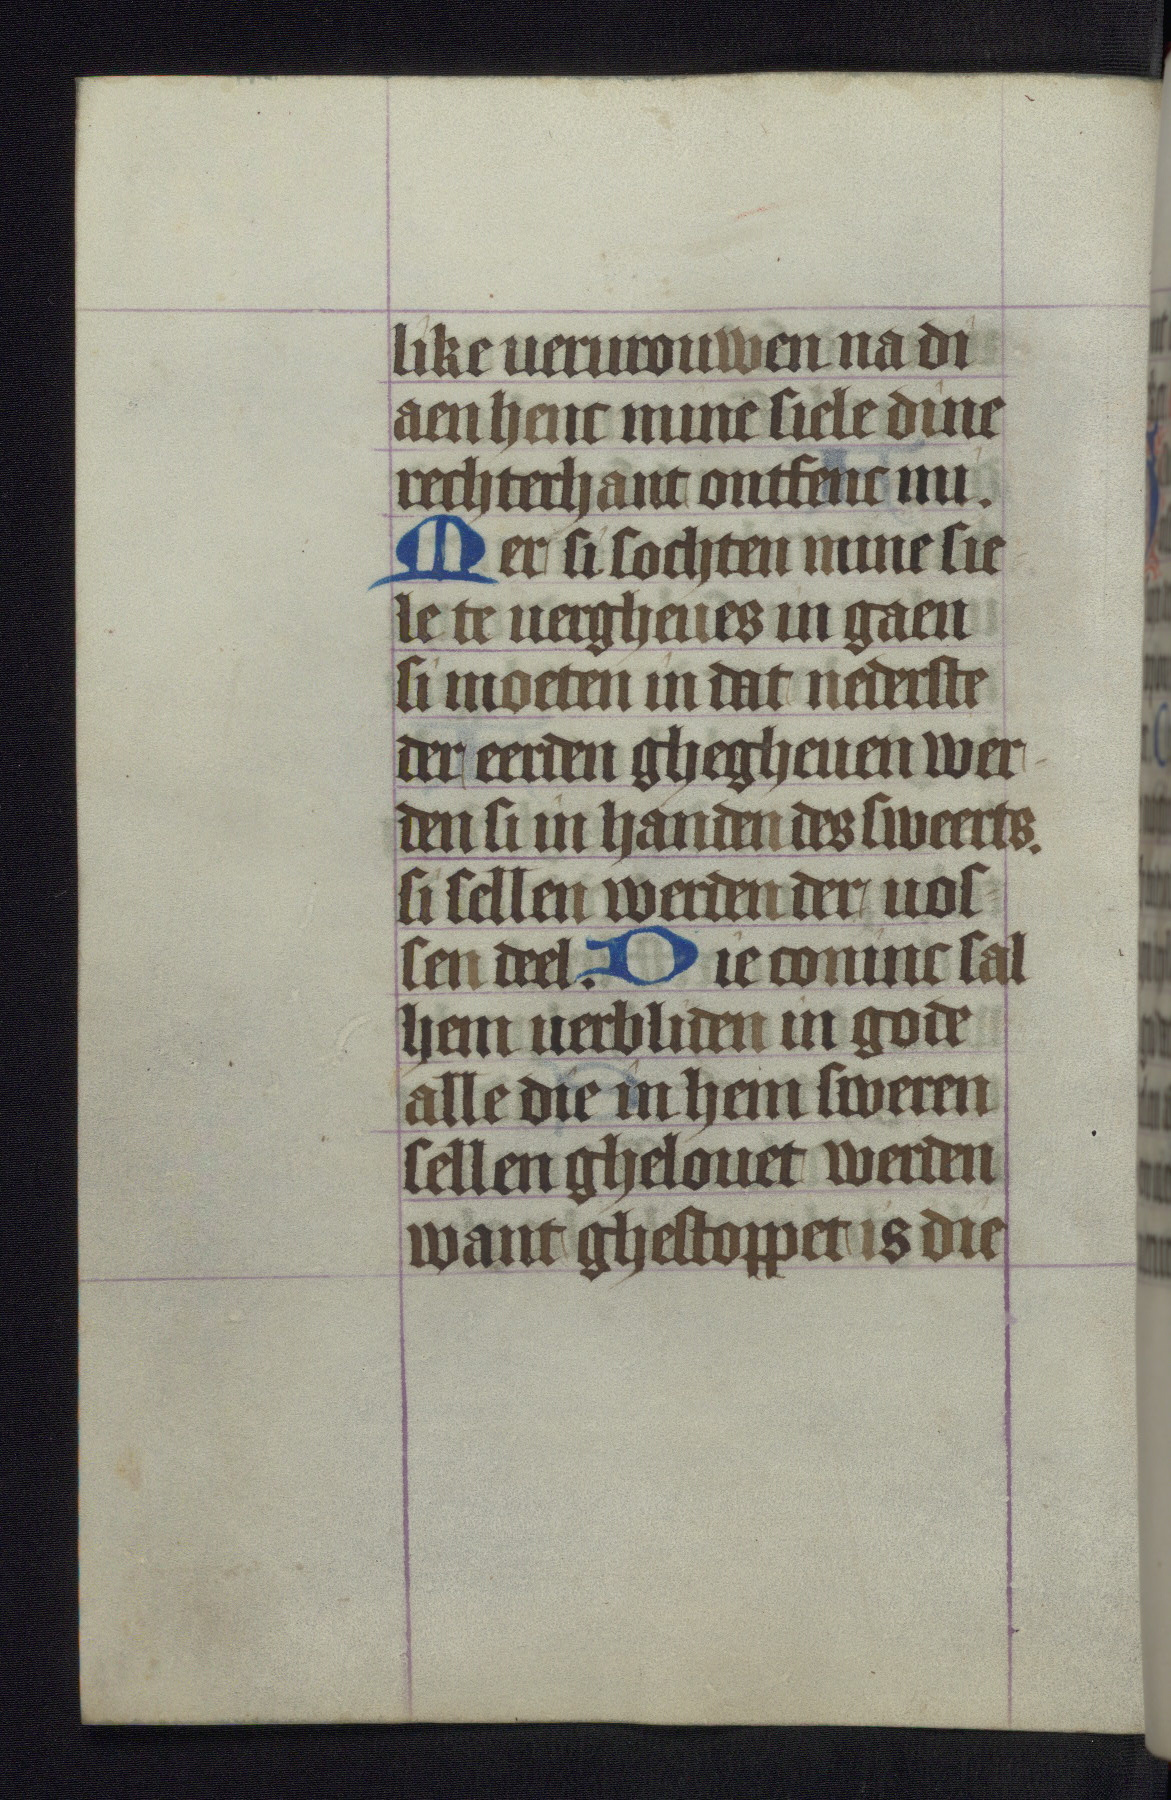 like uerurouwen na di
aen henc mine siele dine
rechterhant ontfenc mi.
Mer si sochten mine sie
le te uergheues in gaen
si moeten in dat nederste
der eerden ghegheuen wer-
den si in handen des sweerts.
si sellen werden der uos
sen deel. Die coninc sal
hem uerbliden in gode
alle die in hem sweren
sellen ghelouet werden
want ghestoppet is die